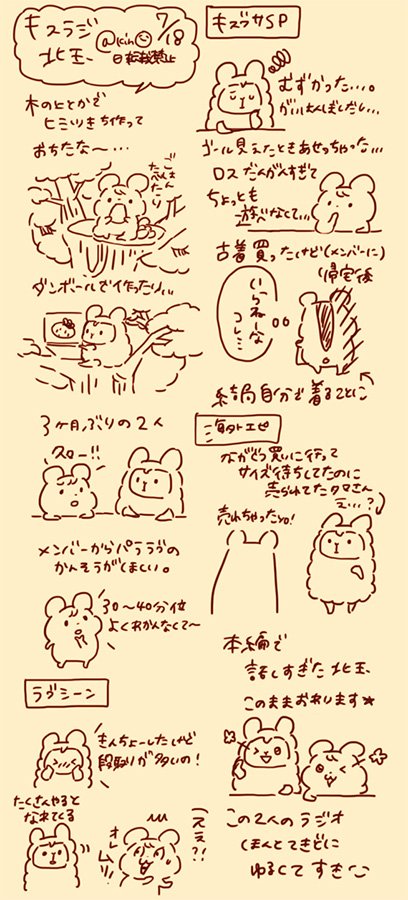 キスラジ 7/18
北玉、
日転載禁止
木のヒとかで
ヒミツきち作って
おちたな〜・・・
ダンボールで作ったり、、、
3ヶ月ぶりの2人
スロー!!
メンバーからパラライブの
かんそうがほしい。
30〜40分位
よくわかんなくて〜
ラブシーン
きんちょーしたけど
段取りが多いの!
たくさんやると
なれてくる
オレ
ムリ!
(ええ?!
キスブサSP
むずかった...。
ゴール見えたときあせっちゃった...
ロスだんがんすぎて
ちょっとも
遊べなくて...
古着買ったけど(メンバーに)
帰宅後
いらねーな
コレ...
結局自分で着ることに
海外エピ
ながぐつ買いに行って
サイズ待ちしてたのに
売られてたタマさん
え...?
売れちゃったYO!
本編で
話しすぎた北玉
このままおわります★
この2人のラジオ
ほんとてきどに
ゆるくてすき